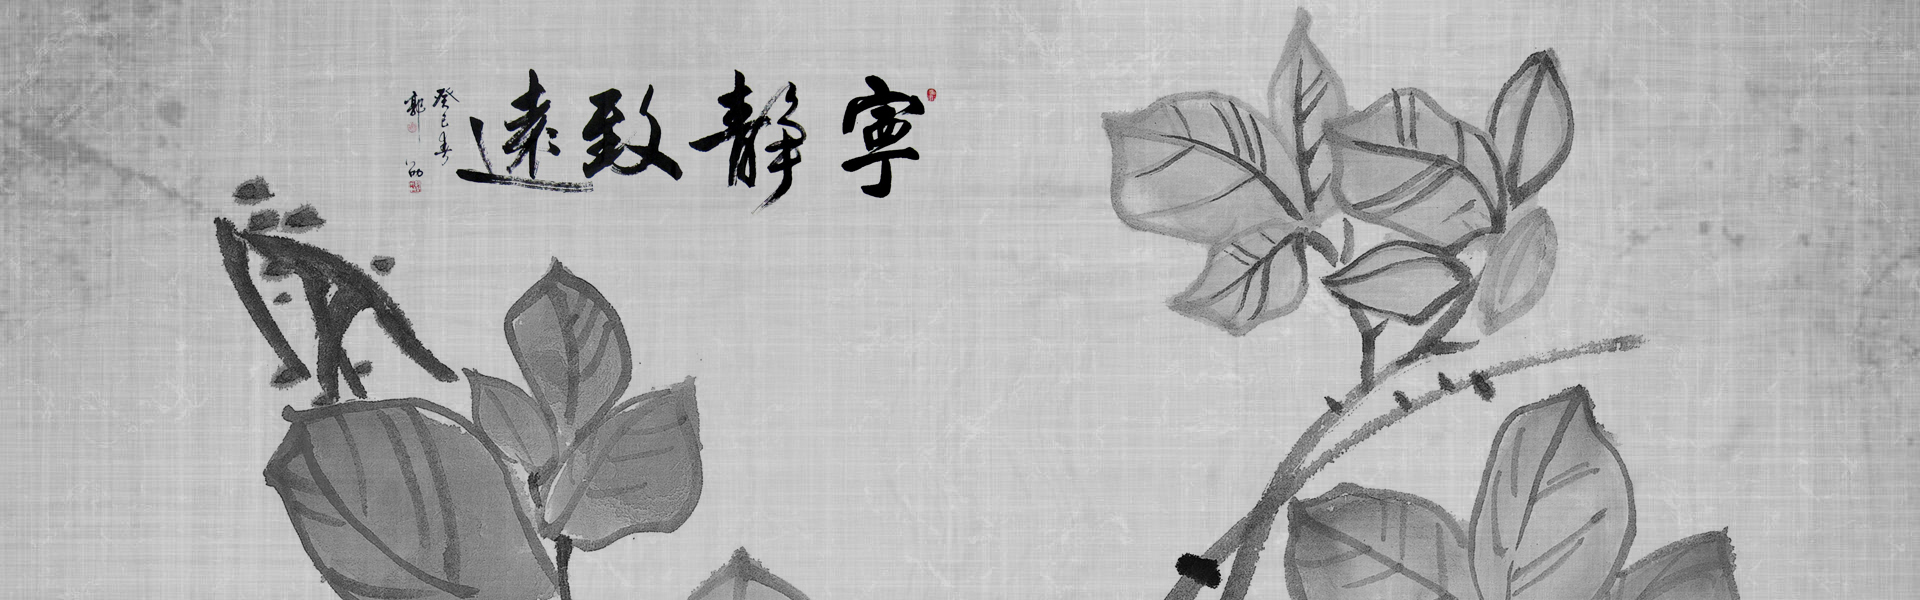 寧靜致遠
癸巳春
郭